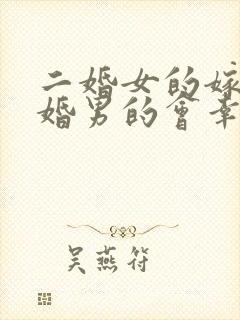 二婚女的嫁
婚男的會幸
吴燕符